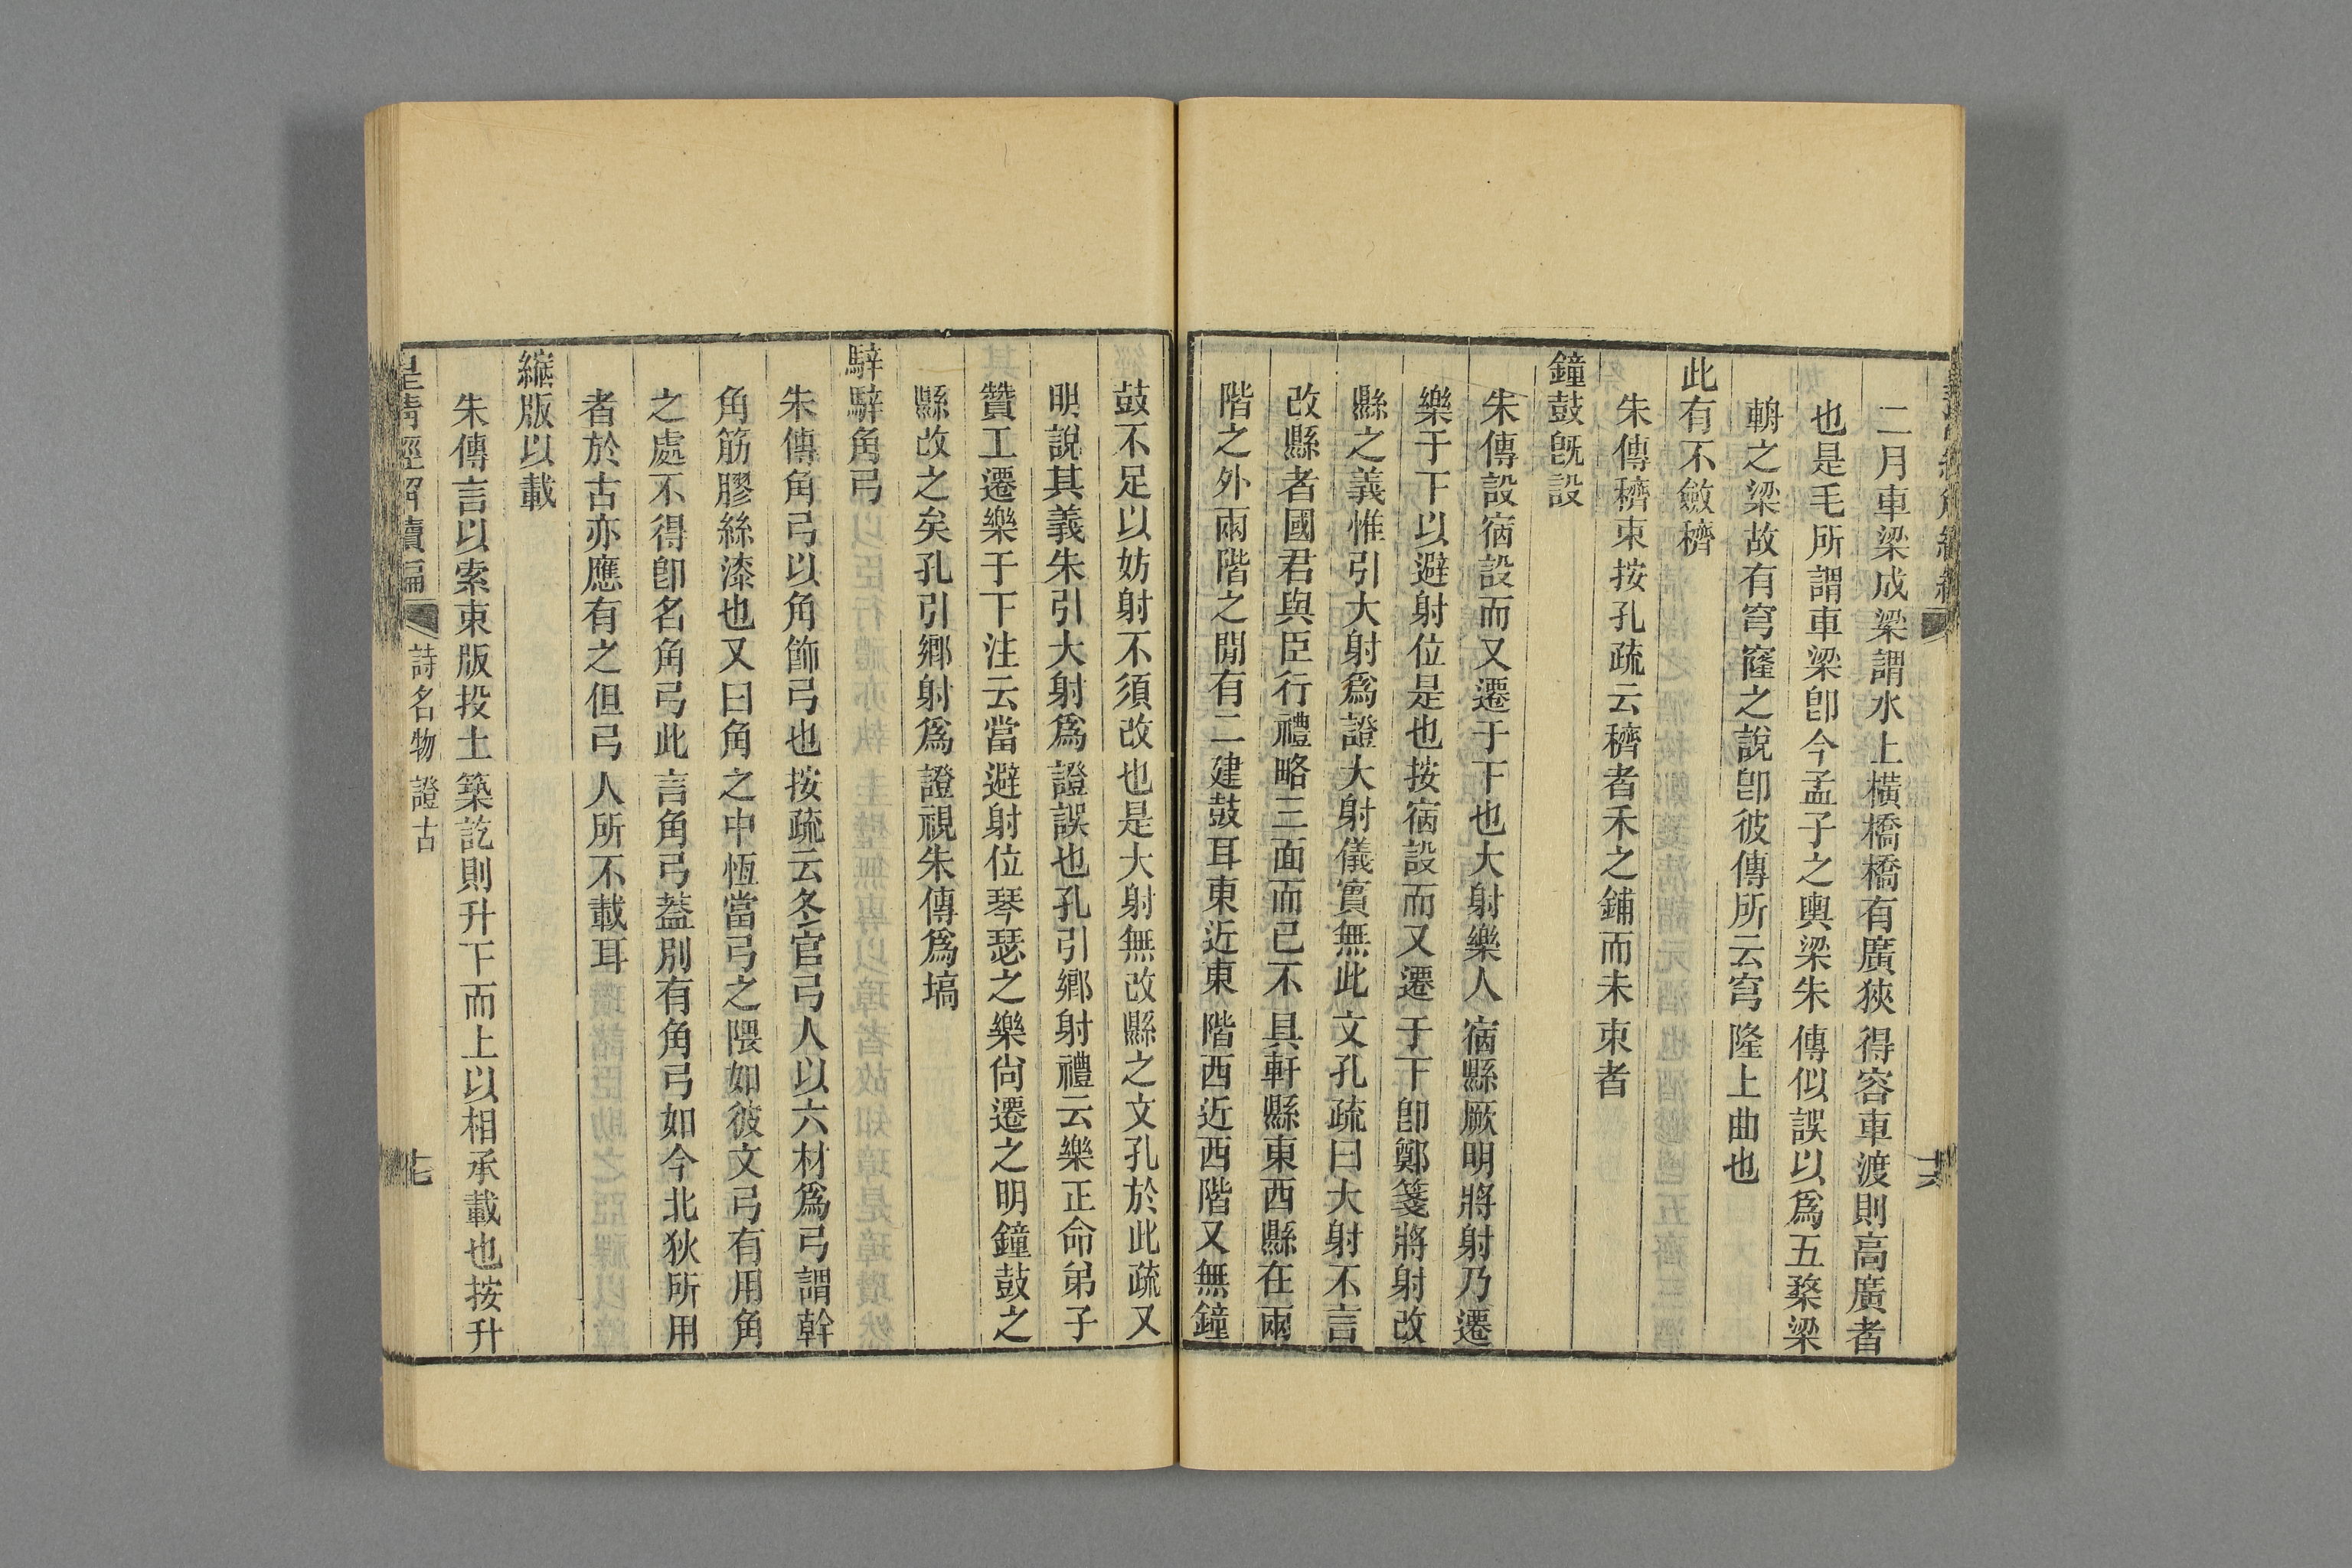 二月車梁成梁謂水上橫橋橋有廣狹得容車渡則高廣者
也是毛所謂車梁卽今孟子之輿梁朱傳似誤以爲五楘梁
輈之梁故有穹窿之說卽彼傳所云穹隆上曲也
此有不斂穧
朱傳穧束按孔疏云穧者禾之鋪而未束者
鐘鼓旣設
朱傳設宿設而又遷于下也大射樂人宿縣厥明將射乃遷
樂于下以避射位是也按宿設而又遷于下卽鄭箋將射改
縣之義惟引大射爲證大射儀實無此文孔疏曰大射不言
改縣者國君與臣行禮略三面而已不具軒縣東西縣在兩
階之外兩階之閒有二建鼓耳東近東階西近西階又無鐘
鼓不足以妨射不須改也是大射無改縣之文孔於此疏又
明說其義朱引大射爲證誤也孔引鄕射禮云樂正命弟子
贊工遷樂于下注云當避射位琴瑟之樂尙遷之明鐘鼓之
縣改之矣孔引鄕射爲證視朱傳爲塙
騂騂角弓
朱傳角弓以角飾弓也按疏云冬官弓人以六材爲弓謂幹
角筋膠絲漆也又曰角之中恆當弓之隈如彼文弓有用角
之處不得卽名角弓此言角弓葢別有角弓如今北狄所用
者於古亦應有之但弓人所不載耳
縮版以載
朱傳言以索束版投土築訖則升下而上以相承載也按升
皇清經解續編 詩名物證古 十七